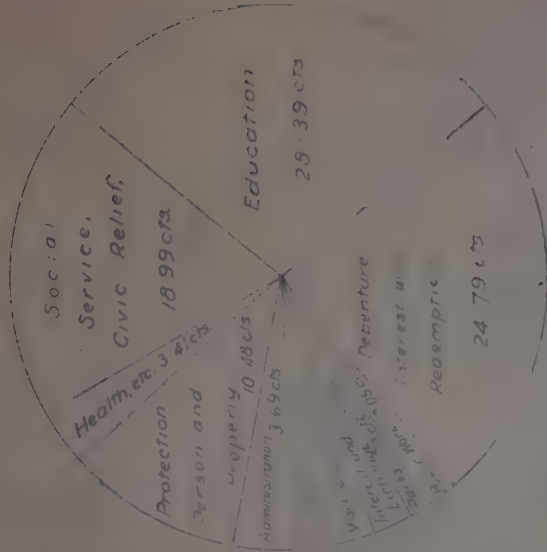 Social
Service,
Civic Relief,
18 99 cts
Education
28 39 cts
Health, etc. 3
Protection
Person and
Property
10 48 cts
Administration 3 69 cts
Debenture
Interest
Redemptio
24 79 cts